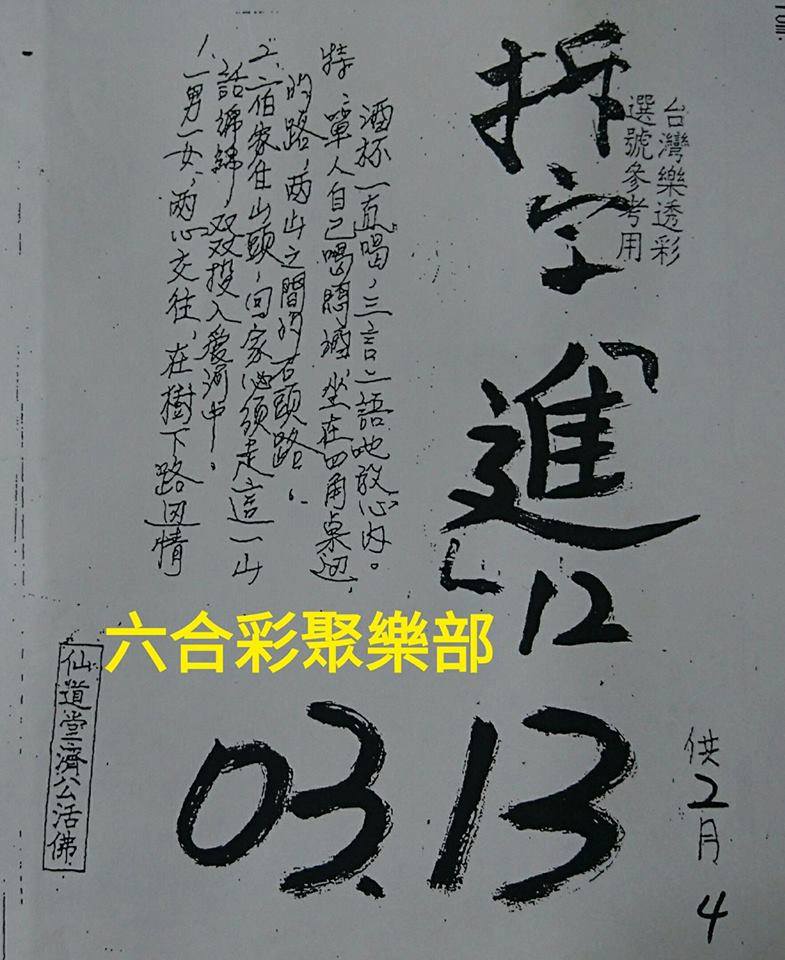 台灣樂透彩
選號參考用
拆字「進」12
03.13
供2月4
1、一男一女，兩心交往，在樹下路邊情
話綿綿，双双投入愛河中。
2、二伯家住山頭，回家必須走這一山
的路，兩山之間的石頭路。
特、單人自己喝悶酒，坐在四角桌邊，
酒杯一直喝，三言二語吔放心內。
六合彩聚樂部
仙道堂濟公活佛